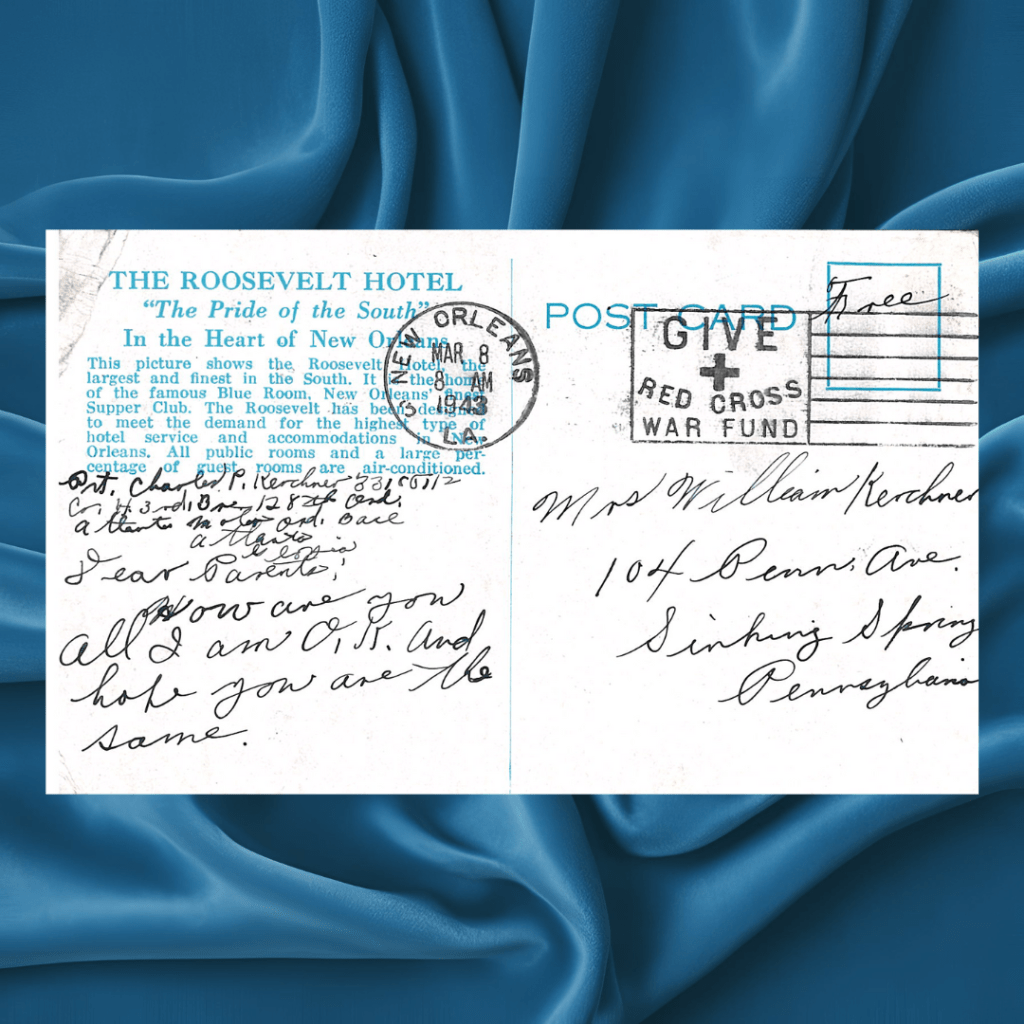 THE ROOSEVELT HOTEL
"The Pride of the South"
In the Heart of New Orleans
This picture shows the Roosevelt Hotel, the
largest and finest in the South. It is the home
of the famous Blue Room, New Orleans' finest
Supper Club. The Roosevelt has been designed
to meet the demand for the highest type of
hotel service and accommodations in New
Orleans. All public rooms and a large per-
centage of guest rooms are air-conditioned.
Pvt. Charles P. Kerchner
Co. H. 3rd. 128th Ord.
Atlanta Motor Ord. Base
Atlanta
Georgia
Dear Parents;
How are you
All I am O.K. And
hope you are the
same.
NEW ORLEANS
MAR 8
8 AM
1943
LA.
3
POST CARD
Free
GIVE
RED CROSS
WAR FUND
Mrs William Kerchner
104 Penn. Ave.
Sinking Spring
Pennsylvania